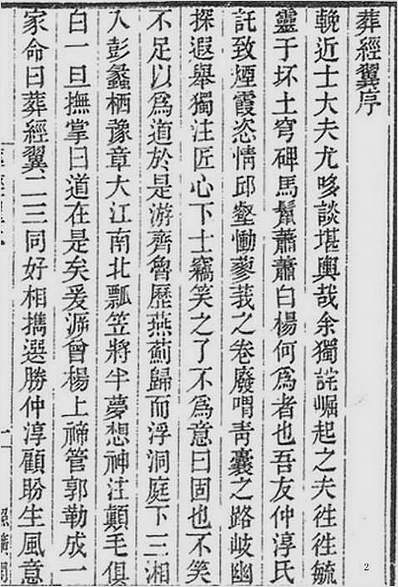 葬經翼序
輓近士大夫尤哆談堪輿哉余獨詫崛起之夫徃徃毓
靈于坏土穹碑馬鬣蕭蕭白楊何爲者也吾友仲淳氏
託致煙霞恣情邱壑慟蓼莪之卷廢喟青囊之路岐幽
探遐舉獨注匠心下士竊笑之了不爲意曰固也不笑
不足以爲道於是游齊魯歷燕薊歸而浮洞庭下三湘
入彭蠡栖豫章大江南北瓢笠將半夢想神注顛毛俱
白一旦撫掌曰道在是矣爰泝曾楊上禘管郭勒成一
家命曰葬經翼二三同好相攜選勝仲淳顧盼生風意
2